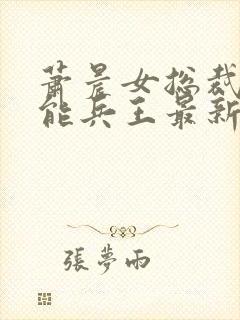 蕭晨女總裁
能兵王最新
張夢雨